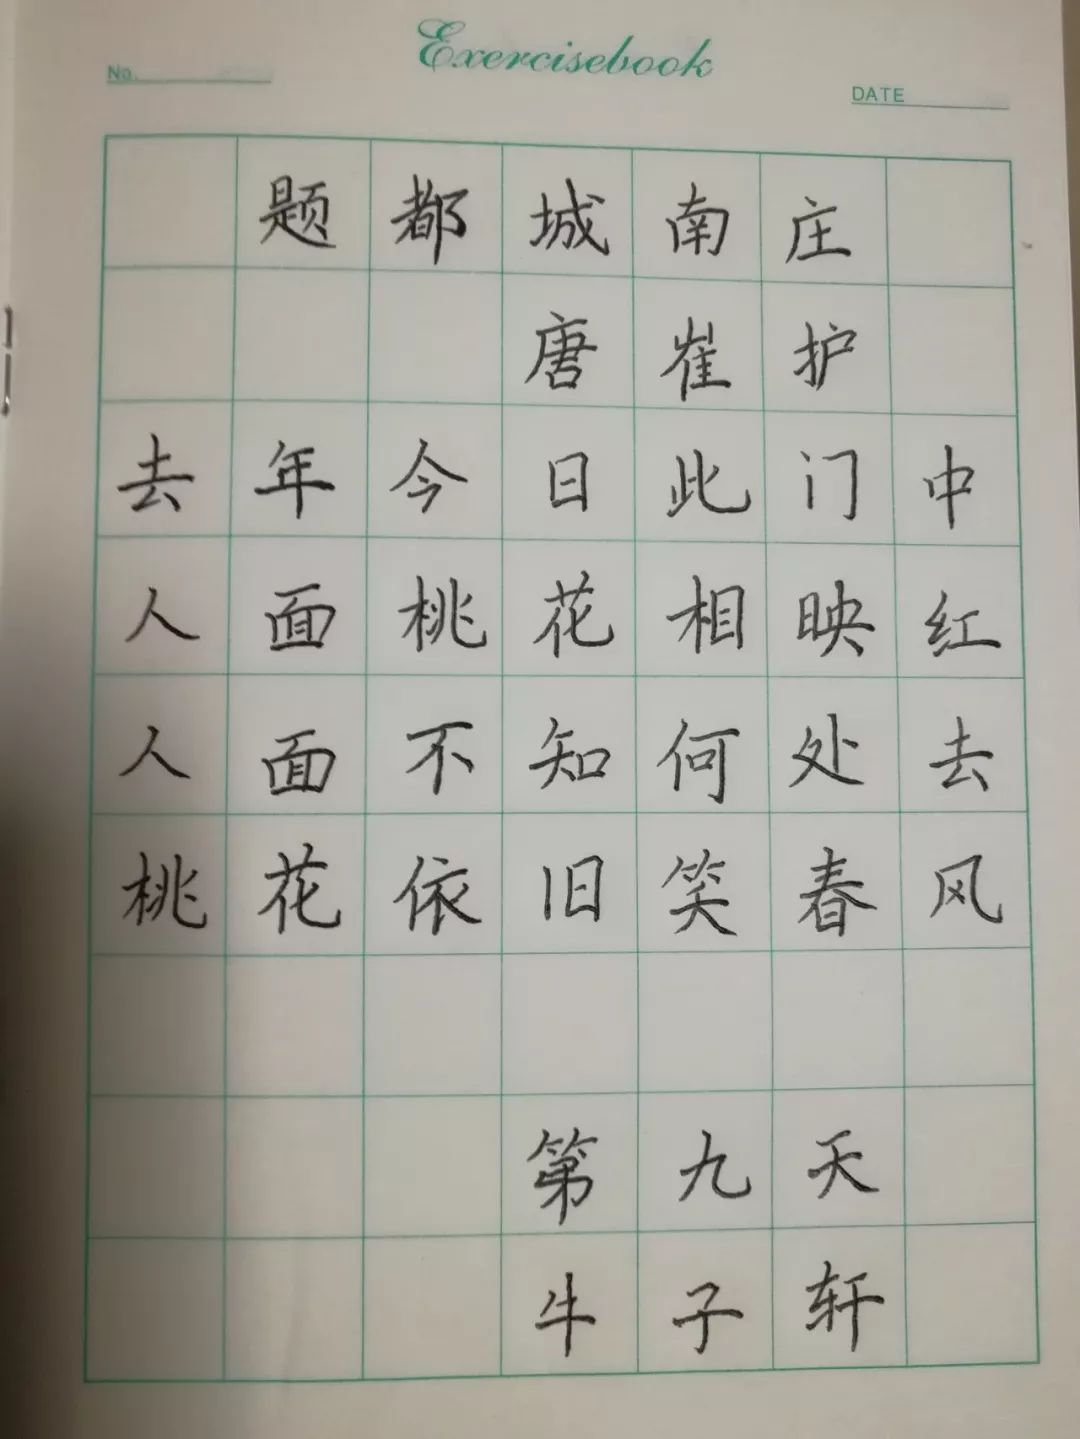 Exercisebook
No.
DATE
题都城南庄
唐崔护
去年今日此门中
人面桃花相映红
人面不知何处去
桃花依旧笑春风
第九天
牛子轩